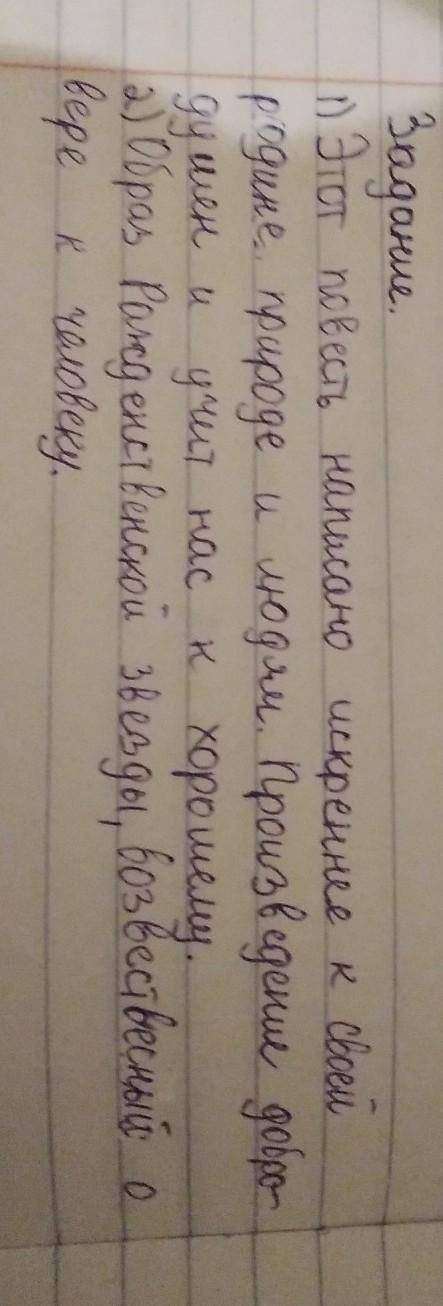 Задание.
1) Этот повесть написано искреннее к своей
родине, природе и людям. Произведение добро-
душен и учит нас к хорошему.
2) Образ Рожденственской звезды, возвественый о
вере к человеку.